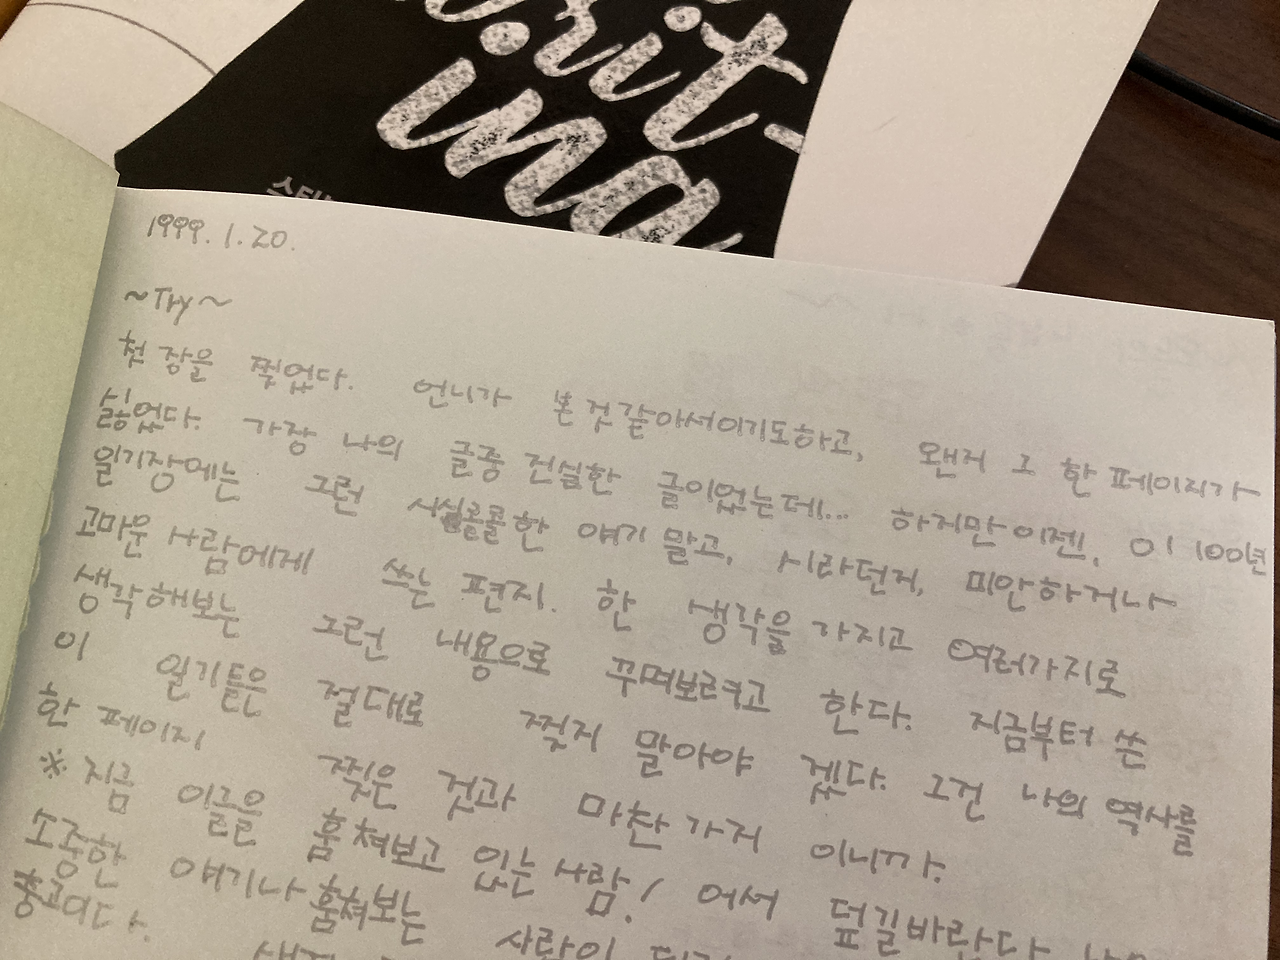 writ-
ing
스티븐
1999. 1. 20.
~Try~
첫 장을 찢었다. 언니가 본 것 같아서이기도하고, 왠지 그 한 페이지가
싫었다. 가장 나의 글중 진실한 글이었는데... 하지만 이젠, 이 100년
일기장에는 그런 시시콜콜한 얘기 말고, 시라던지, 미안하거나
고마운 사람에게 쓰는 편지. 한 생각을 가지고 여러가지로
생각해보는 그런 내용으로 꾸며보려고 한다. 지금부터 쓴
이 일기들은 절대로 찢지 말아야 겠다. 그건 나의 역사를
한 페이지 찢은 것과 마찬가지 이니까.
※ 지금 이글을 훔쳐보고 있는 사람! 어서 덮길바란다
소중한 얘기나 훔쳐보는 사람이
충고이다.